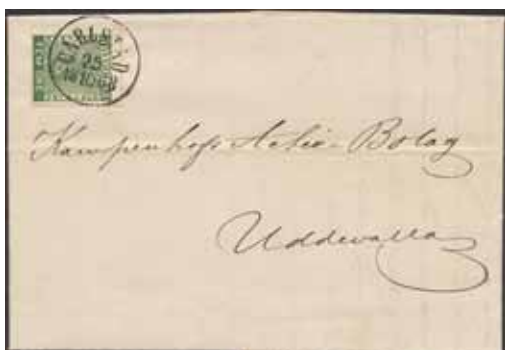 CARLSTAD
25
Kampenhofs Actie-Bolag
Uddevalla